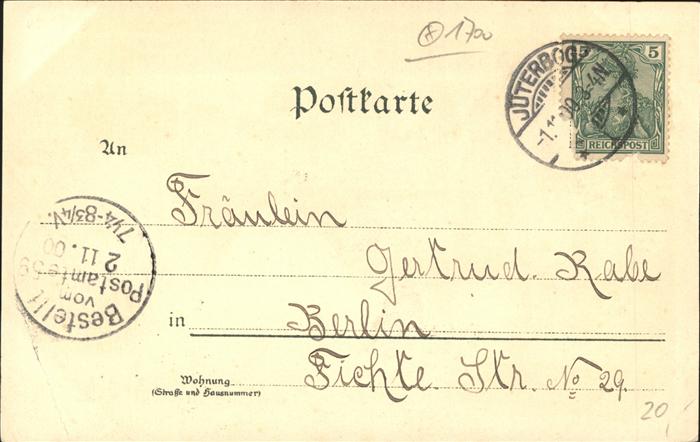 1700
JÜTERBOG
5
REICHSPOST
Postkarte
An
Fräulein
Gertrud. Rabe
in Berlin
Wohnung
(Straße und Hausnummer)
Fichte. Str. No 29.
Bestellt
vom
Postamte 59
2 11. 00
7¼-8¾V.
20,